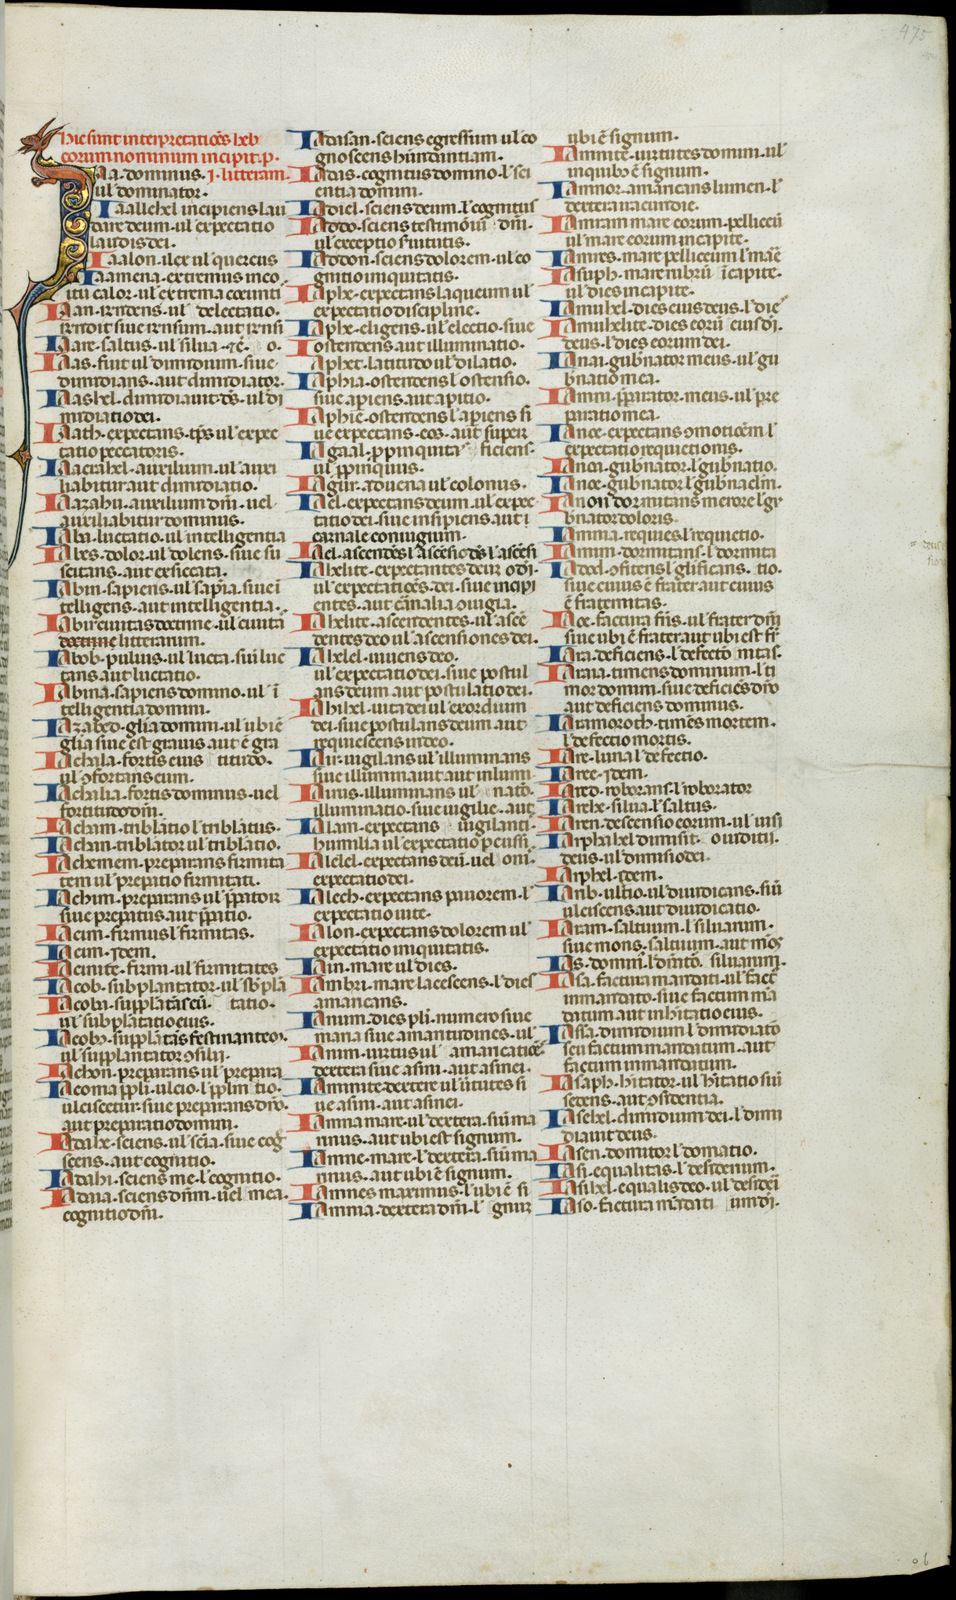 475
Hic sunt interpretatiōēs heb
eorum nominum incipit. p.
Ia a. dominus. I. litteram.
ul dominator.
Iaallehel incipiens lau
dare deum. ul expectatio
laudis dei.
Iaalon. ilex ul quercus
Iaamena. extremus in eo.
Iaare. saltus. ul silua
Iaas. fiunt ul dimidium. siue
dimidians. aut dimidiator.
Iaasiel. dimidiauit dš. ul di
midiatio dei.
Iaath. expectans. ul expec
tatio peccatoris.
Iaacrahel. auxilium. ul auxi
liabitur aut dimidiatio.
Iaazahu. auxilium dn̄i. uel.
auxiliabitur dominus.
Iaba. luctatio. ul intelligentia
Iabes. dolor. ul dolens. siue su
scitans. aut exsiccata.
Iabin. sapiens. ul sapīa. siue i
telligens. aut intelligentia.
litterarum.
Iabob. puluis. ul lucta. siū luc
tans aut luctatio.
Iabina. sapiens domino. ul ī
telligentia domini.
Iazabed. gl̄ia domini. ul ubi ē
gl̄ia siue est grauis aut ē gra
Iachala. fortis eius titudo.
ul ɔfortans eum.
Iachilia. fortis dominus. uel
fortitudo dn̄i.
Iachan. tribl̄atio l tribl̄atus.
Iachan. tribl̄ator ul tribl̄atio.
Iachemem. preparans firmita
tem ul prepatio firmitati.
Iachim. preparans ul p̄pator
siue prepatus. aut p̄patio.
Iacim. firmus l firmitas.
Iacim. Idem.
Iacinite. firmi. ul firmitates
Iacob. subplantator. ul sb̄pla
Iacoba. supplātās eū. tatio.
ul subpl̄atatio eius.
Iacoba. supplātās festinanteor.
ul supplantator ɔsilii.
Iachon. preparans ul prepara
ulciscetur. siue preparans dn̄o.
aut preparatio domini.
Iadahe. sciens. ul scīa. siue cog
scens. aut cognitio.
Iadahi. sciens me. l cognitio.
Iadaia. sciens dn̄m. uel mea.
cognitio dn̄i.
Iadasan. sciens egressum ul co
gnoscens h̄undantiam.
Iadas. cognitus domino. l sci
entia domini.
Iadiel. sciens deum. l cognitus
Iaddo. sciens testimōiū dn̄i.
ul exceptio
Iaddon. sciens dolorem. ul co
gnitio iniquitatis.
Iaphe. expectans laqueum ul
expectatio discipline.
Iaphe. eligens. ul electio. siue
ostendens aut illuminatio.
Iaphet. latitudo ul dilatio.
Iaphia. ostendens l ostensio.
siue apiens. aut apitio.
Iaphie. ostendens l apiens si
ue expectans. eos. aut super
Iagaal. p̄pinquita ficiens.
ul p̄pinquus.
Iagur. aduena ul colonus.
Iael. expectans deum. ul expec
tatio dei. siue insipiens. aut i
carnale coniugium.
Iael. ascendēs l ascēsio dēs l ascēsi
ul expectatiōes dei. siue incipi
entes. aut
Iahelite. ascendentes. ul ascē
dentes deo ul ascensiones dei.
Iahelel. uiuens deo.
ul expectatio dei. siue postul
ans deum aut postulatio dei.
Iahihel. uita dei ul exordium
dei. siue postulans deum. aut
requiescens in deo.
Iair. uigilans ul illuminans
siue illuminauit aut inlumi
Iairus. illuminans ul natō.
illuminatio. siue uigilie. aut
Ialam. expectans uigilanti.
humilia ul expectatio p̄enssi.
Ialelel. expectans deū. uel om̄.
expectatio dei.
Ialech. expectans pauorem. l
expectatio uite.
Ialon. expectans dolorem ul
expectatio iniquitatis.
Iain. mare ul dies.
Iambri. mare lacescens. l dies
amaricans.
Ianum. dies pli. numero siue
maria siue amaritudines. ul
Ianim. uirtus ul amaricatiōē
dextera siue asini. aut asinei.
Iaminite. dextere ul uirtutes si
ue asini. aut asinei.
Iamna mare. ul dextera. siū ma
ximus. aut ubi est signum.
Iamne. mare. l dextera. siū ma
ximus. aut ubi ē signum.
Iamnes maximus. l ubi ē si
Iamma. dextera dn̄i. l gnuz
ubi ē signum.
Iamnite. uirtutes domini. ul
in quibꝫ ē signum.
Iamnor. amaricans lumen. l
dextera iracundie.
Iamram mare eorum. pelliceū
ul mare eorum in capite.
Iamres. mare pelliceum l marē
Iasuph. mare rubrū. ī capite.
ul dies in capite.
Iamuhel. dies eius deus. l die
Iamuhelite. dies eorū eius di.
deus. l dies eorum dei.
Ianai. gub̄nator meus. ul gu
b̄natio mea.
Iamin. p̄parator. meus. ul pre
paratio mea.
Iance. expectans ɔmotiōem l
expectatio requietionis.
Ianoa. gub̄nator. l gub̄natio.
Ianoe. gub̄nator l gub̄na eln̄.
Ianon dormitans merore l gu
b̄nator doloris.
Ianna. requies l requietio.
Ianum. dormitans. l dormita
Iadod. ɔfitens l gl̄ificans. tio.
siue cuius ē frater aut cuius
ē fraternitas.
Iaoe. factura fr̄is. ul frater dn̄i
siue ubi ē frater aut ubi est fr̄
Iara. deficiens. l defectō nitas.
Iaraia. timens dominum. l ti
mor domini. siue deficiēs dn̄o
aut deficiens dominus.
Iaramoroth. timēs mortem.
l defectio mortis.
Iare. luna l defectio.
Iaree. Idem.
Iared. roborans. l roborator
Iarehe. silua. l saltus.
Iaren. descensio eorum. ul uisi
Iarphahel dimisit ouidicii.
deus. ul dimisio dei.
Iarphel. Idem.
Iarib. ultio. ul diuidicans. siū
ulciscens. aut diiudicatio.
Iaram. saltuum. l siluarum.
siue mons. saltuum. aut mōs
Ias. domini. l dn̄atō. siluarum.
Iasa. factura mandati. ul factē
in mandato. siue factum mā
datum aut in h̄itatio eius.
Iasia. dimidium l dimidiatō
seu factum mandatum. aut
factum in mandatum.
Iasaph. h̄itator. ul h̄itatio siū
sedens. aut ɔsidentia.
Iasehel. dimidium dei. l dimi
diauit deus.
Iasen. domitor l domatio.
Iasi. equalitas. l desideriū.
Iasihel. equalis deo. ul desideri
Iaso. factura mādati um di.